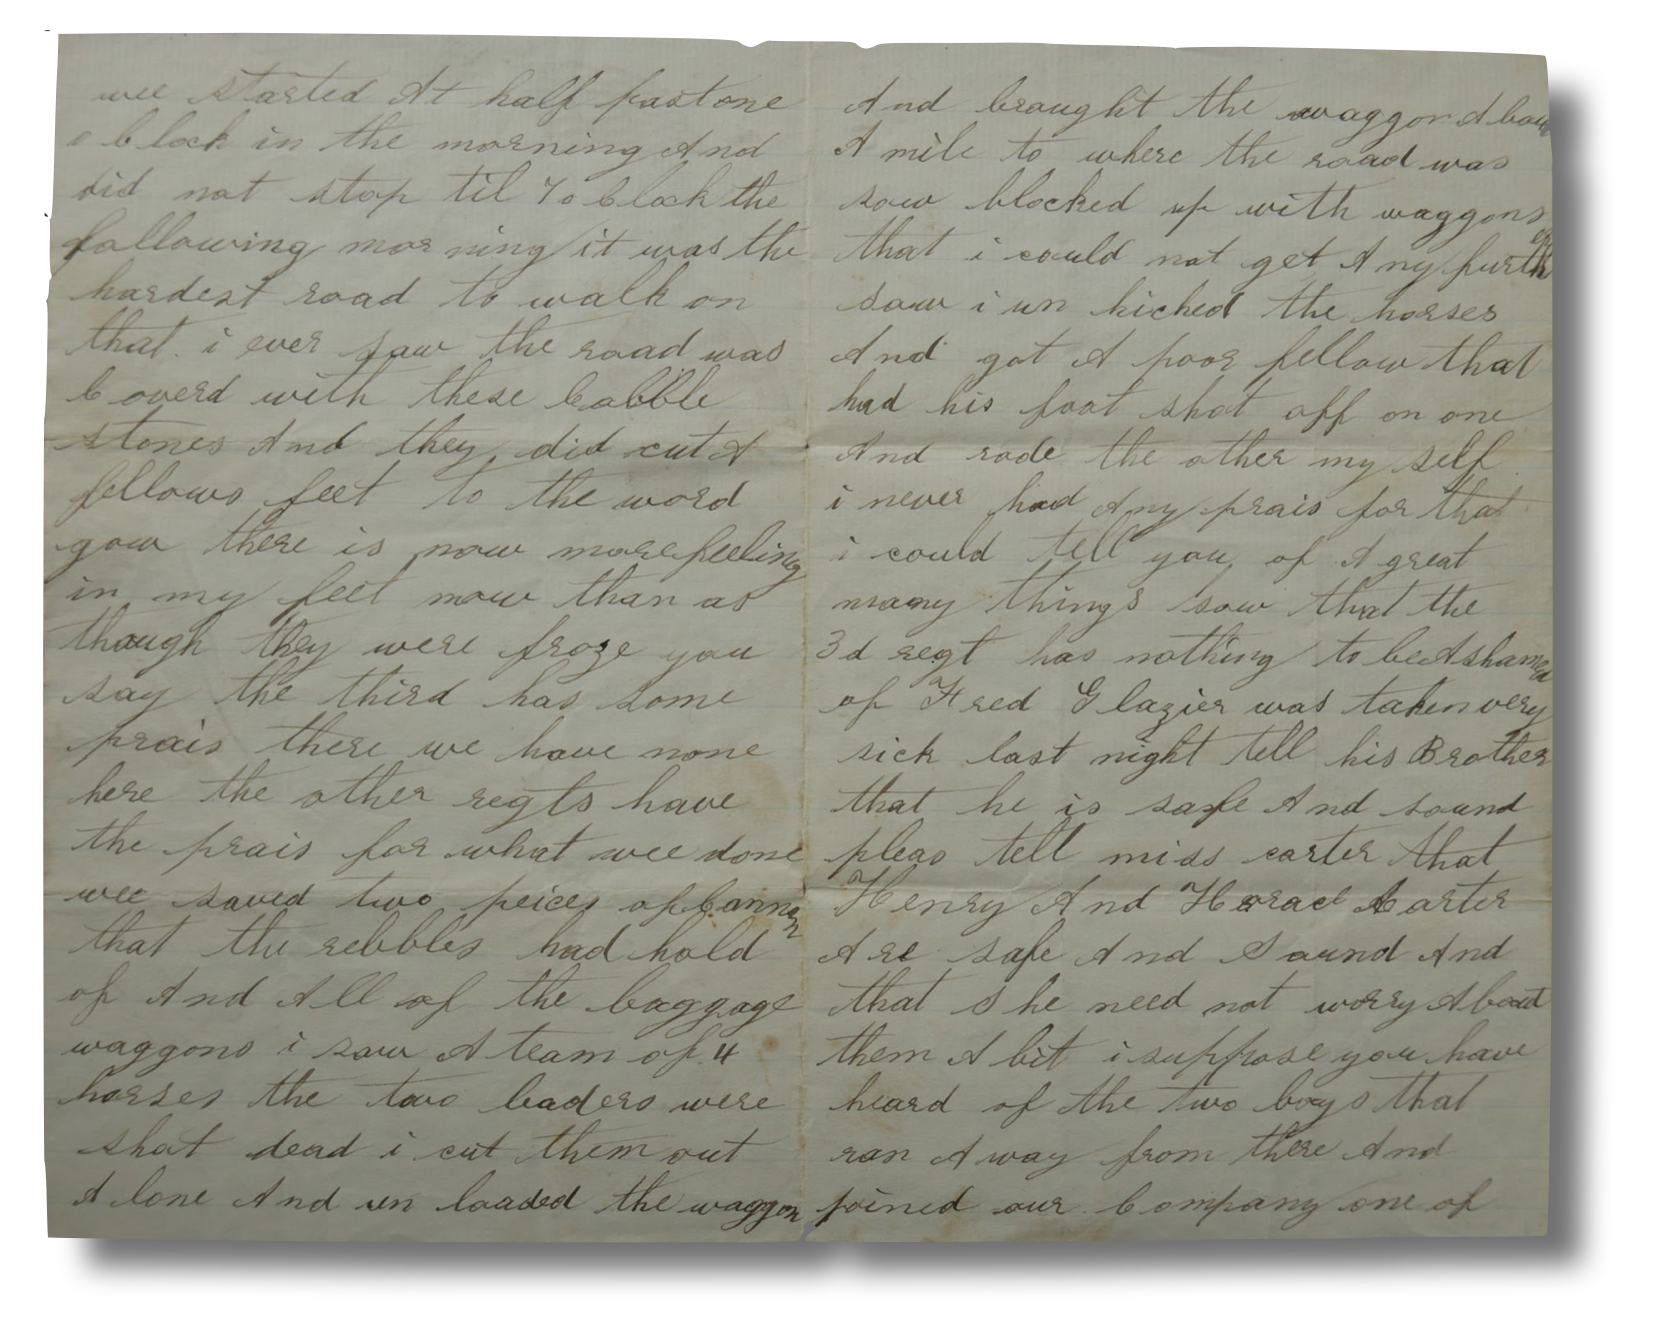 wee started At half past one
o Clock in the morning And
did not stop til 7 o Clock the
following morning it was the
hardest road to walk on
that i ever saw the road was
Coverd with these Cobble
stones And they did cut A
fellows feet to the word
gow there is now more feeling
in my feet now than as
though they were froze you
say the third has some
prais there we have none
here the other regts have
the prais for what wee done
wee saved two peices of Cannon
that the rebbles had hold
of And All of the baggage
waggons i saw A team of 4
horses the two leaders were
shot dead i cut them out
A lone And un loaded the waggon
And braught the waggon A bout
A mile to where the road was
sow blocked up with waggons
that i could not get Any further
sow i un hiched the horses
And got A poor fellow that
had his foot shot off on one
And rode the other my self
i never had Any prais for that
i could tell you of A great
many things sow that the
3d regt has nothing to be Ashamed
of Fred Glazier was taken very
sick last night tell his Brother
that he is safe And sound
pleas tell miss carter that
Henry And Horace Carter
Are safe And Sound And
that She need not worry About
them A bit i suppose you have
heard of the two boys that
ran A way from there And
joined our Company one of